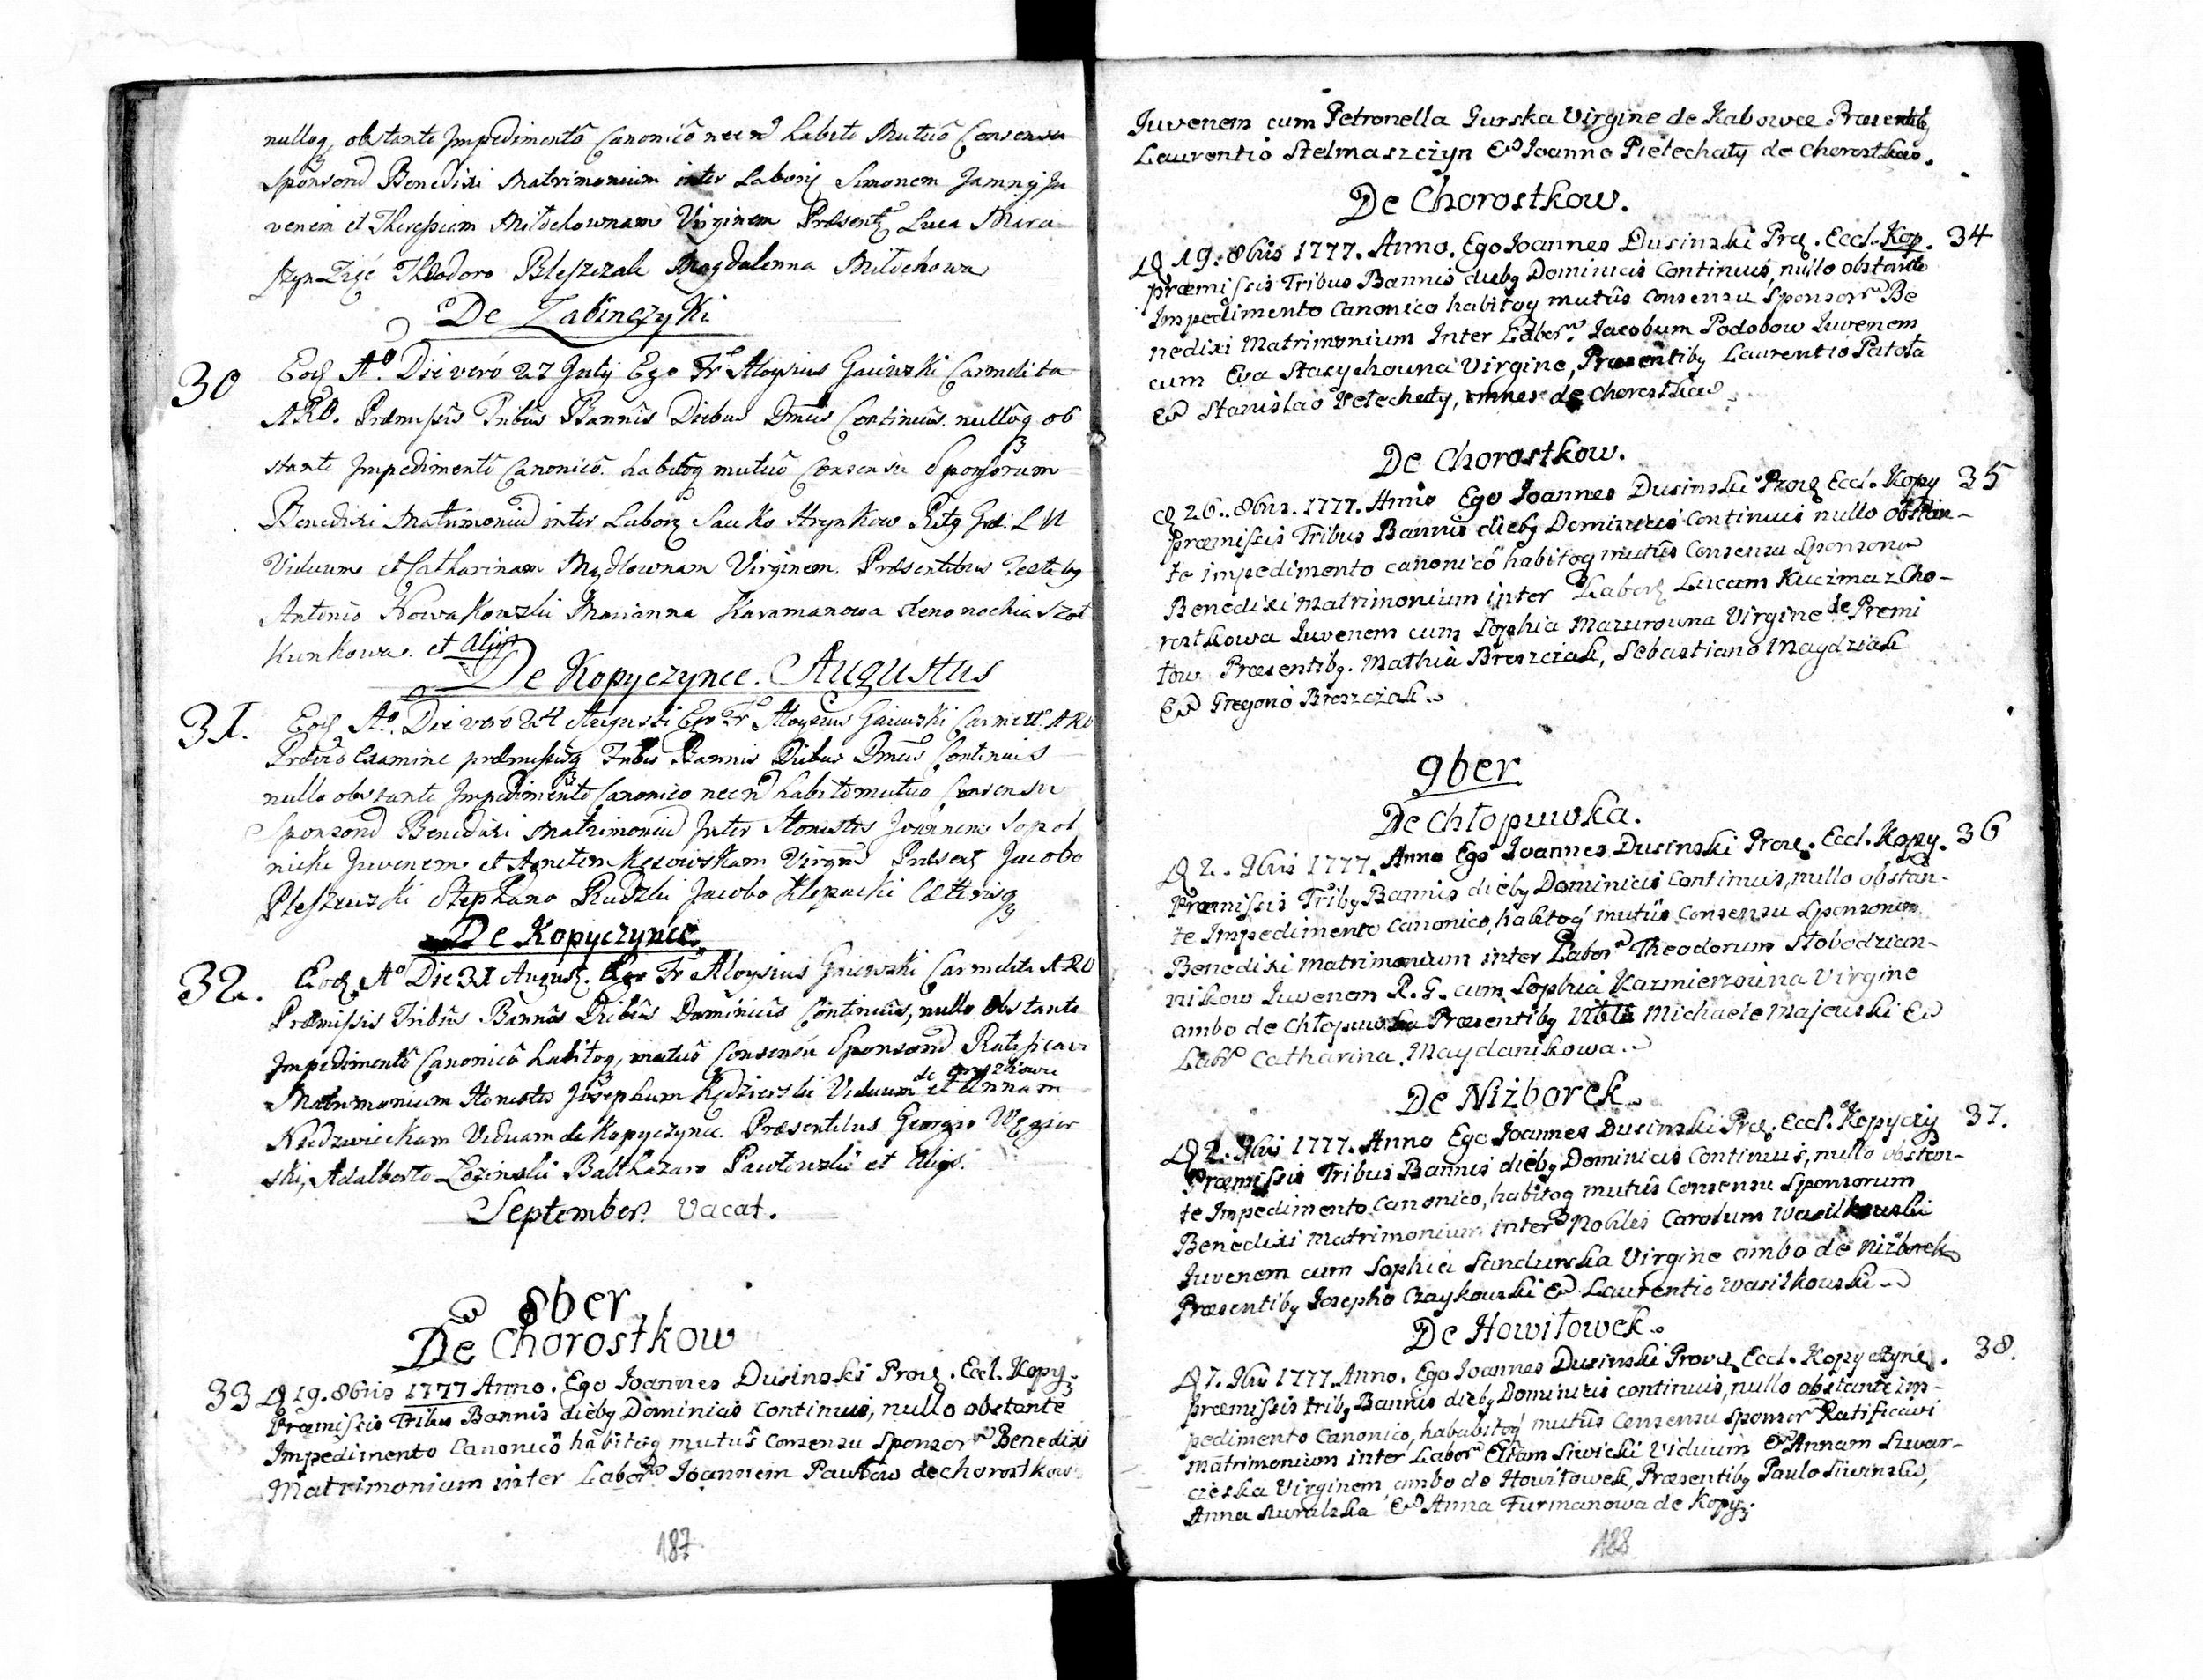 nulloq, obstante Impedimento Canonico necn habito Mutuo Consensu
Sponsorū Benedixi Matrimonium inter Labors Simonem Jamny Ju
venem et Theressiam Miłdchownam Virginem Præsentz Luca Mara
szyn Theodoro Bleszczak Magdalenna Miłdchowa
De Zabinczyki
30 Eodz Aº. Die veró 27 July Ego Fr Aloysius Gaiewski Carmelita
ARO. Præmissis Tribus Bannis Diebus Dmcis Continuis. nulloq ob
stante Impedimento Canonico. habitoq mutuo Consensu Sponsorum
Benedixi Matrimoniū inter Laborz Sauko Hrynkow Ritq Grd. LN
Viduum et Catharinam Mydłownam Virginem. Præsentibus Testibq
Antonio Nowakowski Marianna Karamanowa Szoł
kunkowa. et alijs
De Kopyczynce. Augustus
31. Eodz Aº. Die veró 24 Augusti Ego Fr Aloysius Gaiewski Carmelt. ARO
Prævio Examine præmissisq Tribus Bannis Diebus Dmcis Continuis
nullo obstante Impedimento Canonico necn habito mutuo Consensu
Sponsorū Benedixi Matrimoniū Inter Honestos Joannem Sopol
nicki Juvenem et Agnetem Kęsowskam Virgine Præsentz Jacobo
Pleszewski Stephano Rudzki Jacobo Klepacki Cæterisq
De Kopyczynce.
32. Eodz Aº Die 31 Augusz. Ego Fr Aloysius Gaiewski Carmelita ARO
Præmissis Tribus Bannis Diebus Dominicis Continuis, nullo Obstante
Impedimento Canonico habitoq, mutuo Consensu Sponsorū Ratificavi
Matrimonium Honestos Josephum Kędzierski Viduum de et Annam
Niedzwieckam Viduam de Kopyczynce. Præsentibus Georgio Węgier
ski, Adalberto Łozinski Balthazaro Pawłowski et Alijs.
September. Vacat.
8ber
De Chorostkow
33 D 19. 8bris 1777 Anno. Ego Joannes Dusinski Proz. Eccl. Kopy.
Præmissis Tribus Bannis diebq Dominicis Continuis, nullo obstante
Impedimento Canonico habitoq mutuo Consensu Sponsor Benedixi
Matrimonium inter Labor Joannem Pawłow de chorostkow
187
Juvenem cum Petronella Gurska Virgine de Kabowce Præsentibq
Laurentio Stelmaszczyn & Joanne Pielechaty de Chorostkow.
De Chorostkow.
D 19. 8bris 1777. Anno. Ego Joannes Dusinski Prz. Eccl. Kop. 34
præmissis Tribus Bannis diebq Dominicis Continuis, nullo obstante
Impedimento Canonico habitoq mutuo Consensu Sponsor Be
nedixi Matrimonium Inter Labor. Jacobum Podobow Juvenem
cum Eva Stasychowna Virgine, Præsentibq Laurentio Patoła
& Stanislao Pelechaty, omnes de Chorostkow.
De Chorostkow.
D 26. 8bris. 1777. Anno Ego Joannes Dusinski Proz Eccl. Kopy 35
præmissis Tribus Bannis diebq Dominicis Continuis nullo obstan-
te impedimento canonicó habitoq mutuo Consensu Sponsoru
Benedixi Matrimonium inter Laborz Lucam Kuczma z Cho-
rostkowa Juvenem cum Sophia Mazurowna Virgine de Premi
łow Præsentibq. Mathia Broszczak, Sebastiano Magdziak
& Gregorio Broszczak.
9ber
De Chłopuwka.
D 2. 9bris 1777. Anno Ego Joannes Dusinski Proz. Eccl. Kopy. 36
Præmissis Tribq Bannis diebq Dominicis Continuis, nullo obstan-
te Impedimento Canonico, habitoq mutuo Consensu Sponsorum
Benedixi Matrimonium inter Labor Theodorum Słobodzian-
nikow Juvenem R. G. cum Sophia Kazmierzowna Virgine
ambo de Chłopuwka Præsentibq Nbli Michaele Majewski &
Labr Catharina Maydanikowa.
De Niżborek.
D 2. 9bris 1777. Anno Ego Joannes Dusinski Prz. Eccl. Kopyczy 37.
Præmissis Tribus Bannis diebq Dominicis Continuis, nullo obstan-
te Impedimento Canonico, habitoq mutuo Consensu Sponsorum
Benedixi Matrimonium inter Nobiles Carolum Wasilkowski
Juvenem cum Sophia Sandurska Virgine ambo de Niżborek
Præsentibq Josepho Czaykowski & Laurentio Wasilkowski
De Howiłowek.
D 7. 9bris 1777. Anno. Ego Joannes Dusinski Proz. Eccl. Kopyczyne. 38.
præmissis tribq Bannis diebq Dominicis continuis, nullo obstante im-
pedimento Canonico, hababitoq mutuo Consensu Sponsor Ratificavi
Matrimonium inter Labor Eliam Siwicki Viduum & Annam Szwar-
czeska Virginem ambo de Howiłowek, Præsentibq Paulo Siwinski,
Anna & Anna Furmanowa de Kopy.
188